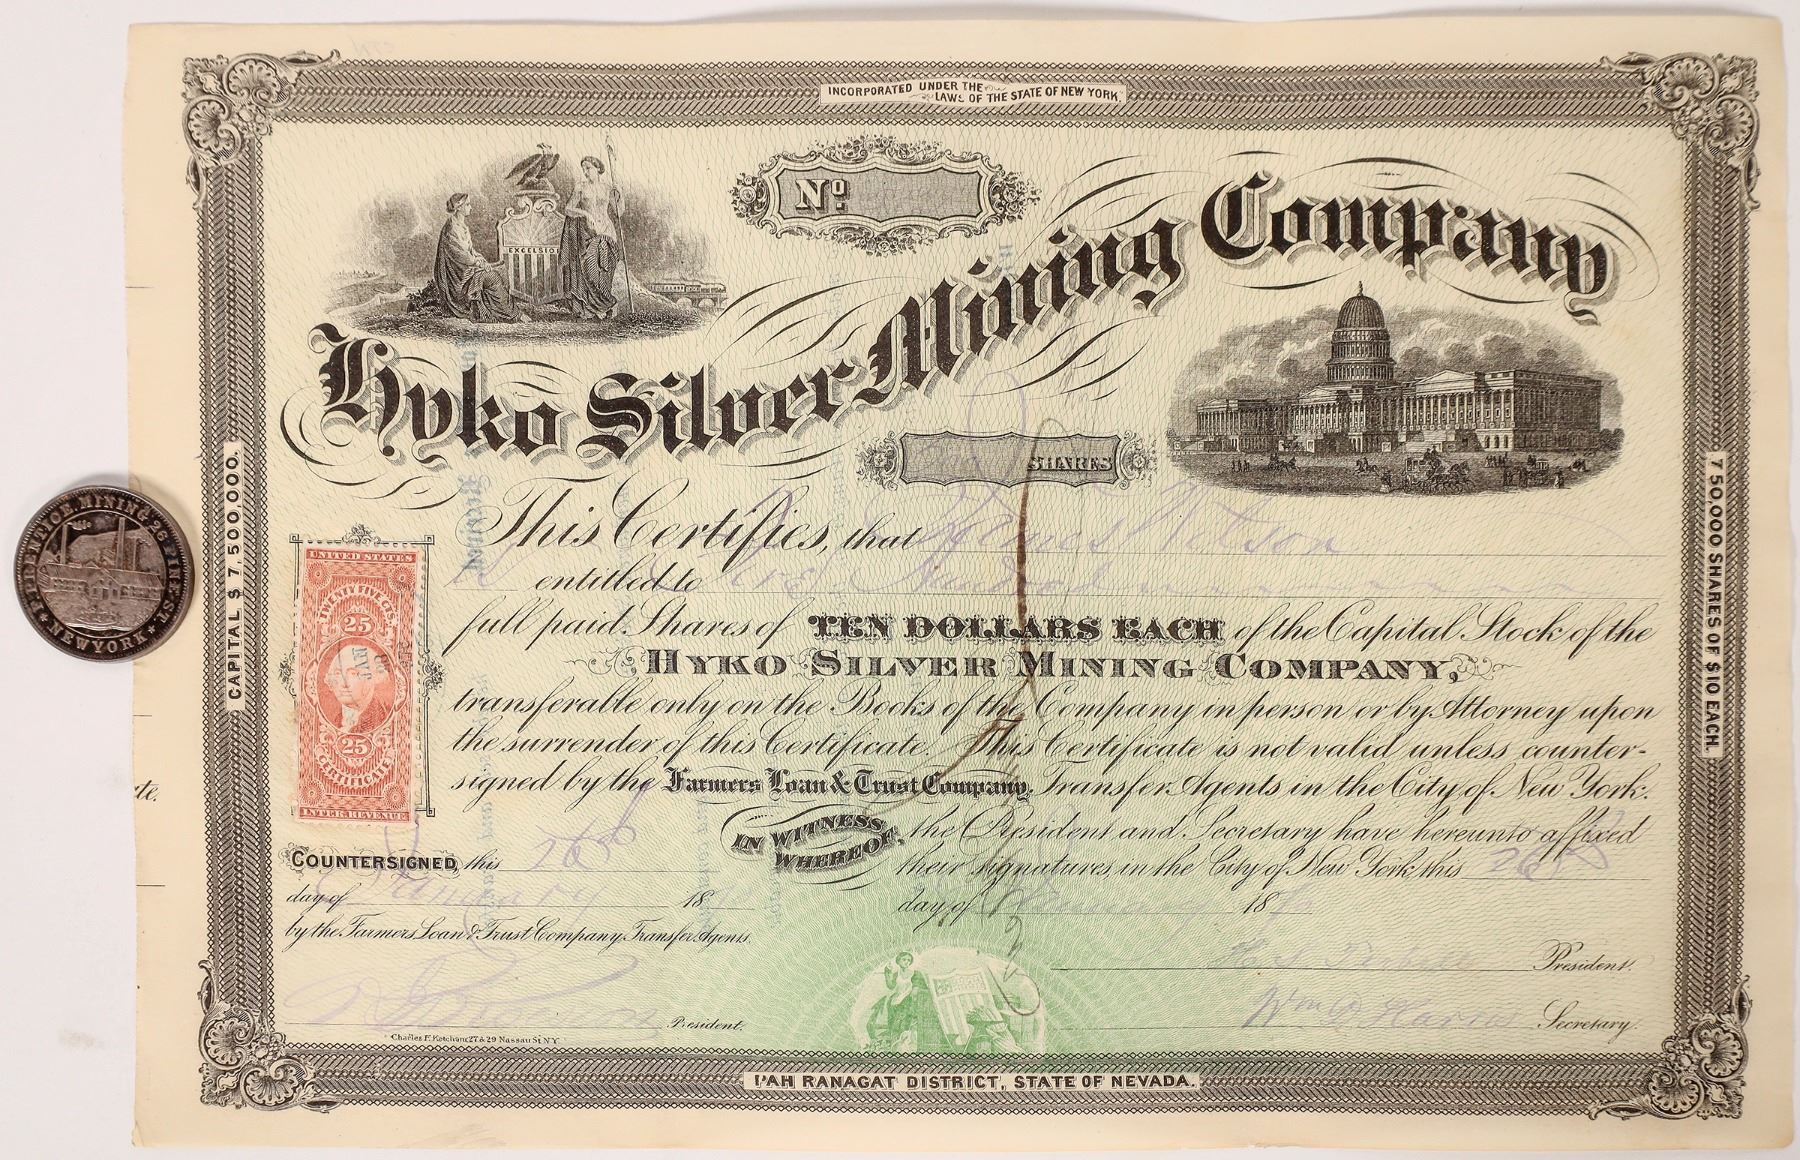 INCORPORATED UNDER THE
LAWS OF THE STATE OF NEW YORK.
No.
EXCELSIOR
Hyko Silver Mining Company
SHARES
CAPITAL $ 7,500,000.
750,000 SHARES OF $10 EACH.
PRENTICE MINING 26 PINE ST.
★ NEW YORK ★
This Certifies, that Nelson
entitled to Five Hundred
full paid Shares of TEN DOLLARS EACH of the Capital Stock of the
HYKO SILVER MINING COMPANY,
transferable only on the Books of the Company in person or by Attorney upon
the surrender of this Certificate. This Certificate is not valid unless counter-
signed by the Farmers Loan & Trust Company, Transfer Agents in the City of New York.
IN WITNESS WHEREOF, the President and Secretary have hereunto affixed
their signatures, in the City of New York this 26th
day of January 18
UNITED STATES
TWENTY FIVE CTS.
25
25
CERTIFICATE
INTER. REVENUE
COUNTERSIGNED, this 26th
day of January 18
by the Farmers Loan & Trust Company, Transfer Agents.
President.
President.
Wm Harris Secretary.
Charles F. Ketcham 27 & 29 Nassau St. N.Y.
PAH RANAGAT DISTRICT, STATE OF NEVADA.
te.